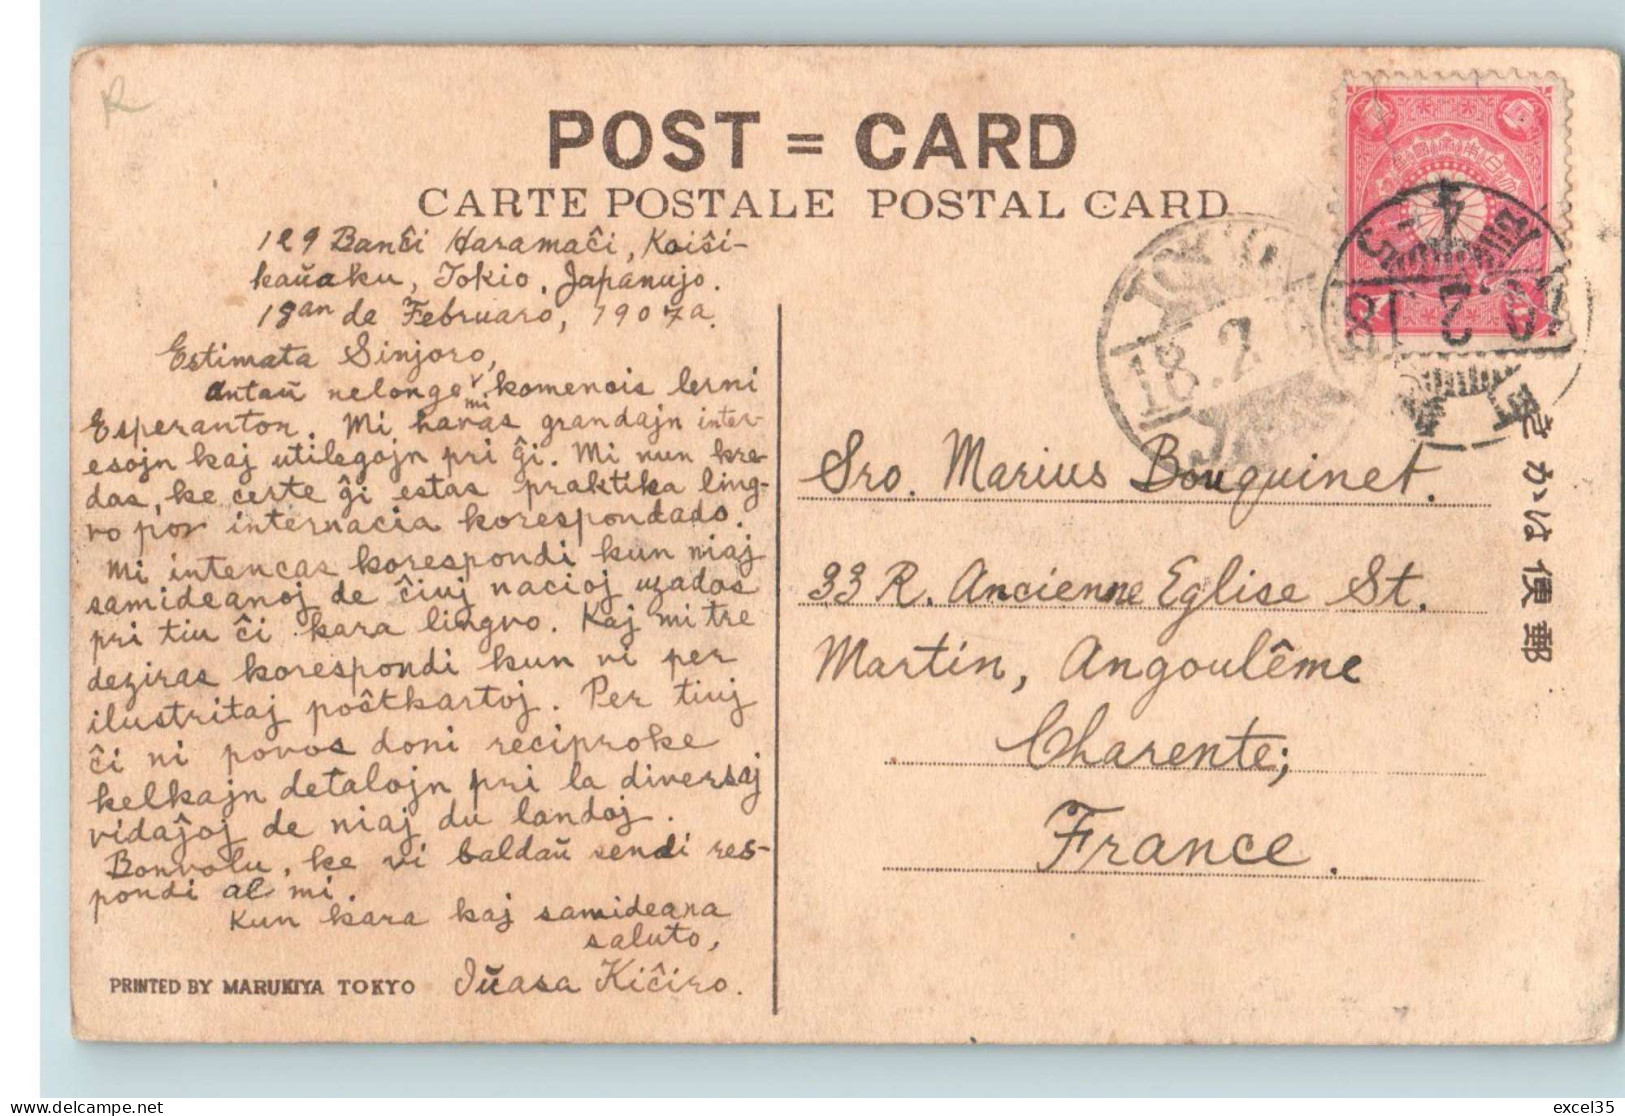 POST = CARD
CARTE POSTALE POSTAL CARD
129 Banĉi Haramaĉi, Koiŝi-
kaŭaku, Tokio, Japanujo.
18an de Februaro, 1907a.
Estimata Sinjoro,
antaŭ nelonge mi komencis lerni
Esperanton. Mi havas grandajn inter-
esojn kaj utilegojn pri ĝi. Mi nun kre-
das, ke certe ĝi estas praktika ling-
vo por internacia korespondado.
Mi intencas korespondi kun niaj
samideanoj de ĉiuj nacioj uzados
pri tiu ĉi kara lingvo. Kaj mi tre
deziras korespondi kun vi per
ilustritaj poŝtkartoj. Per tiuj
ĉi ni povos doni reciproke
kelkajn detalojn pri la diversaj
vidaĵoj de niaj du landoj.
Bonvolu, ke vi baldaŭ sendi res-
pondi al mi.
Kun kara kaj samideana
saluto,
Iŭasa Kiĉiro.
PRINTED BY MARUKIYA TOKYO
Sro. Marius Bouquinet.
33 R. Ancienne Eglise St.
Martin, Angoulême
Charente;
France.
きかは便郵
18.2
excel35
delcampe.net